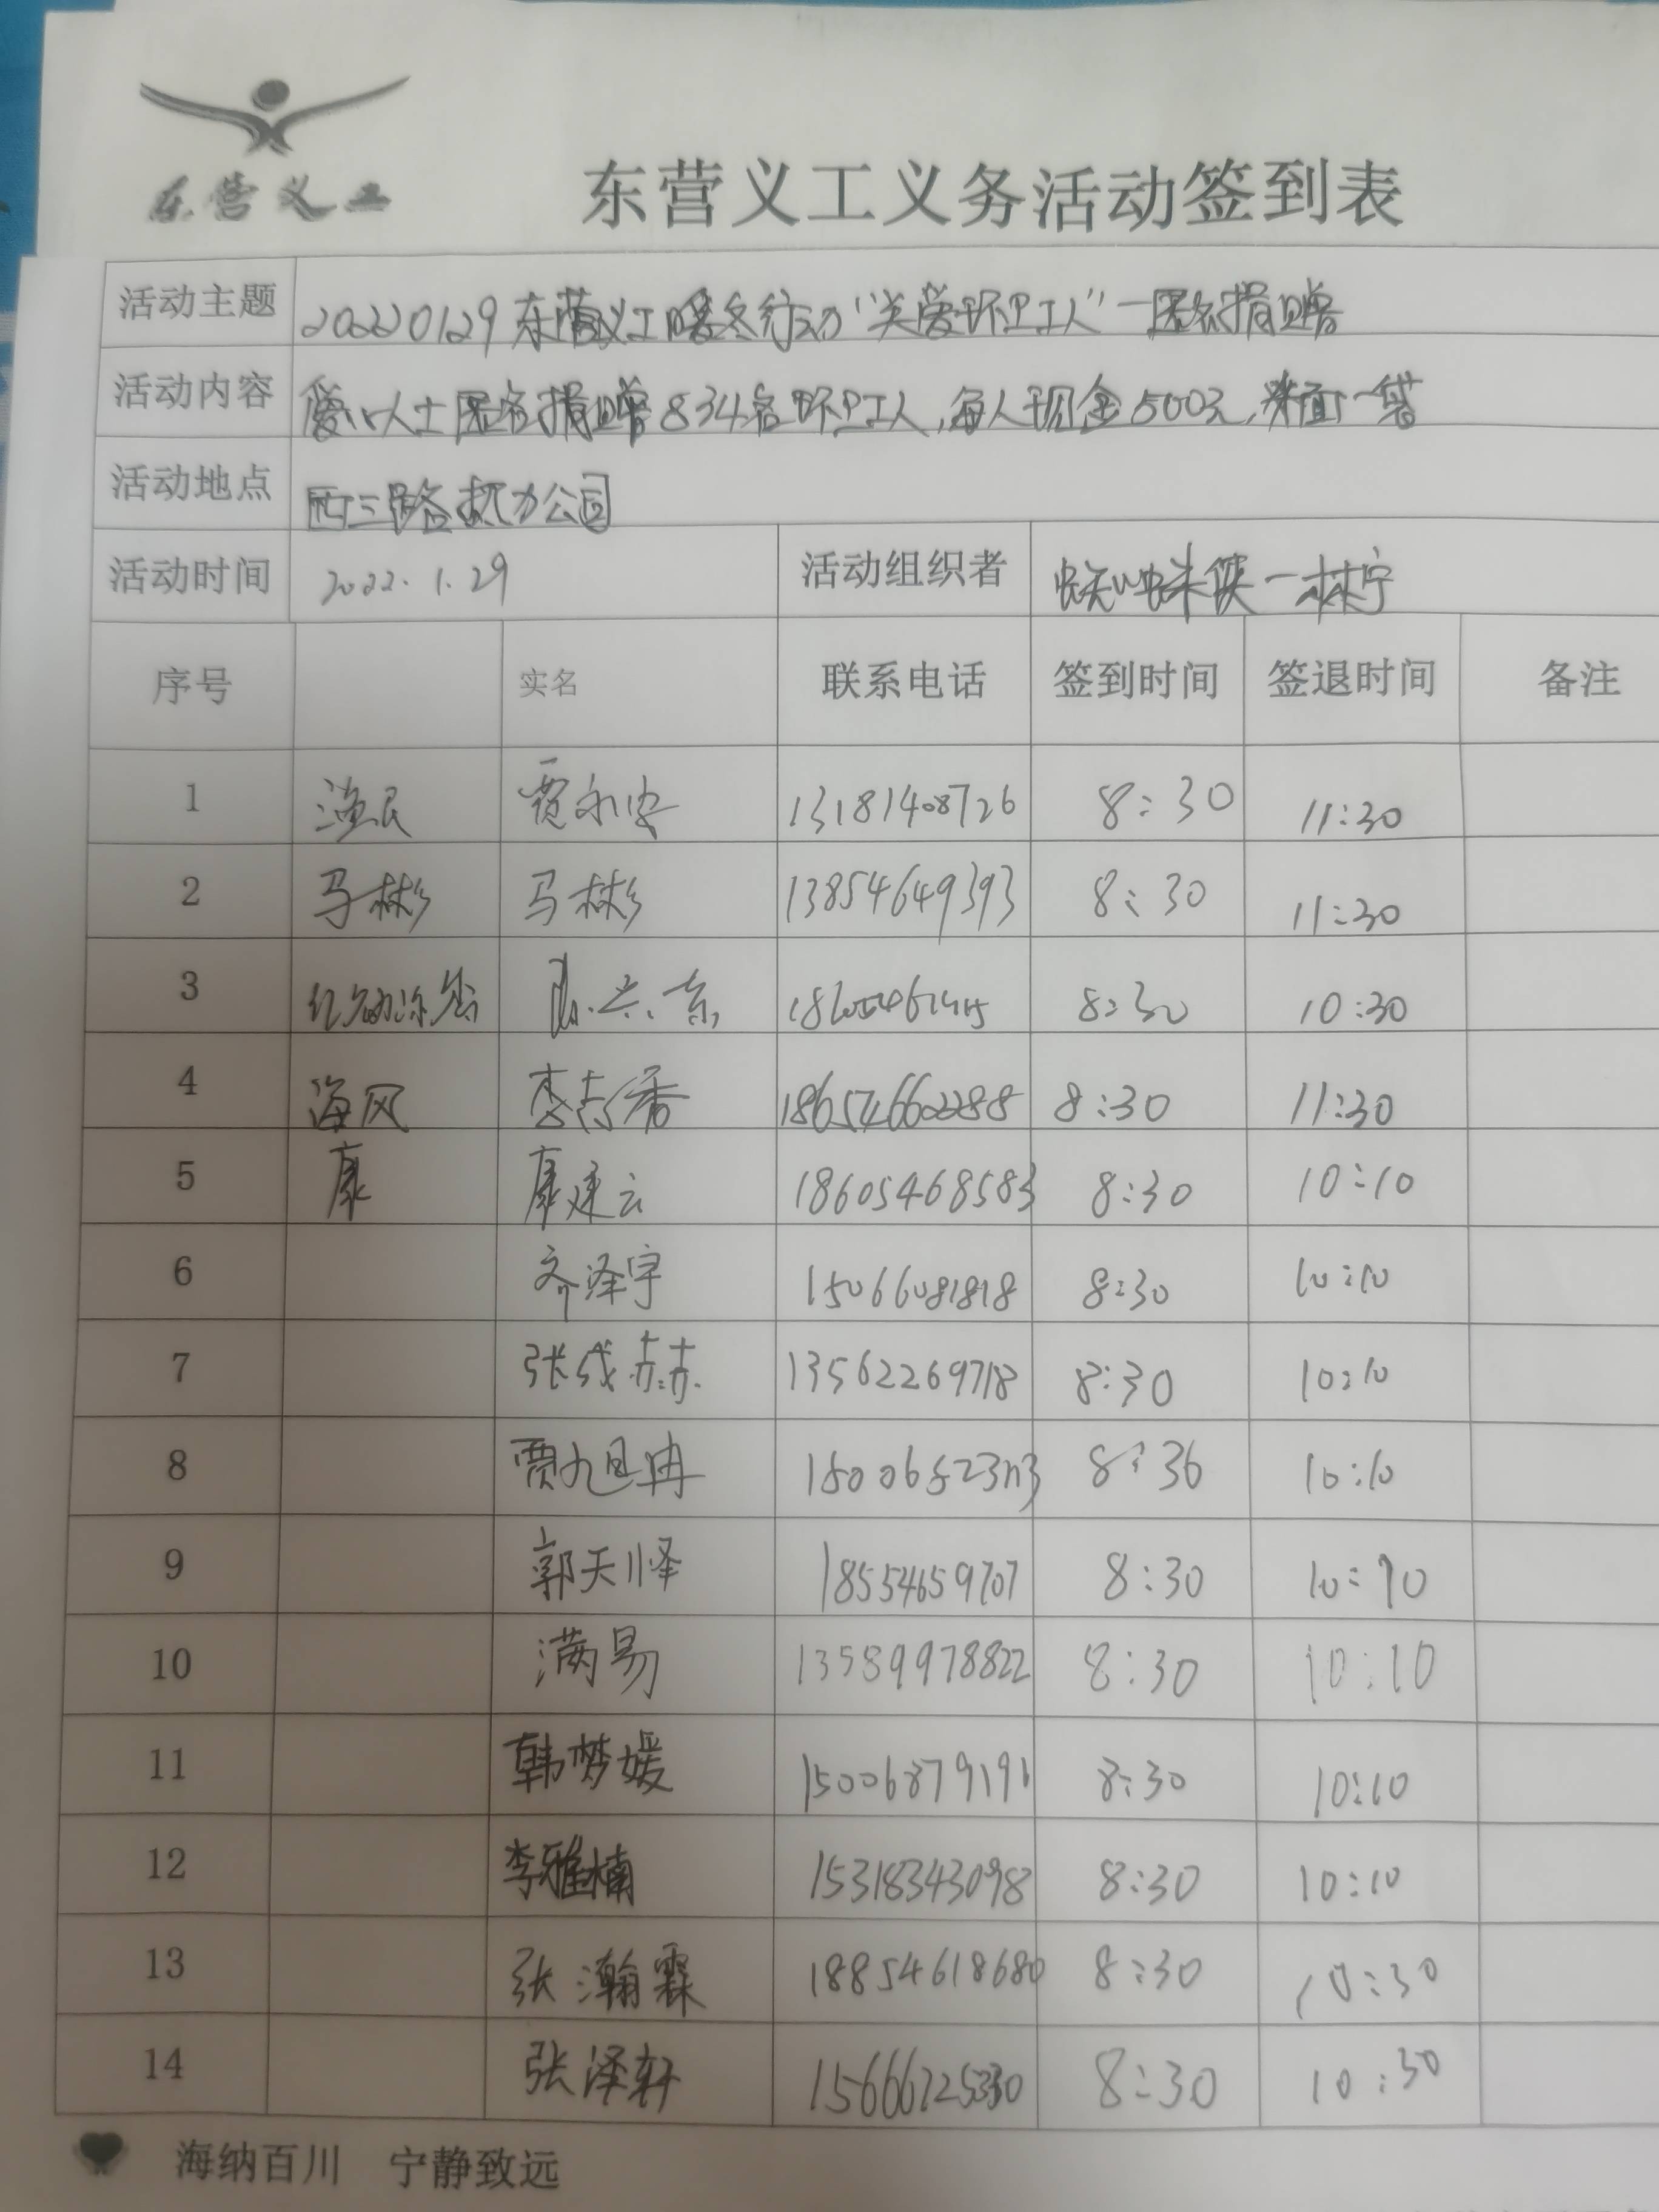 东营义工
东营义工义务活动签到表
活动主题 20220129东营义工暖冬行动“关爱环卫工人”一匿名捐赠
活动内容 爱心人士匿名捐赠834名环卫工人,每人现金500元,米面一袋
活动地点 西三路 公园
活动时间 2022.1.29 活动组织者 蜘蛛侠一林宁
序号 实名 联系电话 签到时间 签退时间 备注
1 渔民 贾永 13181408726 8:30 11:30
2 马彬 马彬 13854649393 8:30 11:30
3 8:30 10:30
4 海风 李志香 18654660288 8:30 11:30
5 康 康建云 18605468583 8:30 10:10
6 齐泽宇 15066081818 8:30 10:10
7 张成赫 13562269718 8:30 10:10
8 贾旭冉 8:36 10:10
9 郭天怿 18554659707 8:30 10:10
10 满易 13589978822 8:30 10:10
11 韩梦媛 15006879191 8:30 10:10
12 李雅楠 15318343098 8:30 10:10
13 张瀚霖 18854618680 8:30 10:30
14 张泽轩 15666725330 8:30 10:30
海纳百川 宁静致远